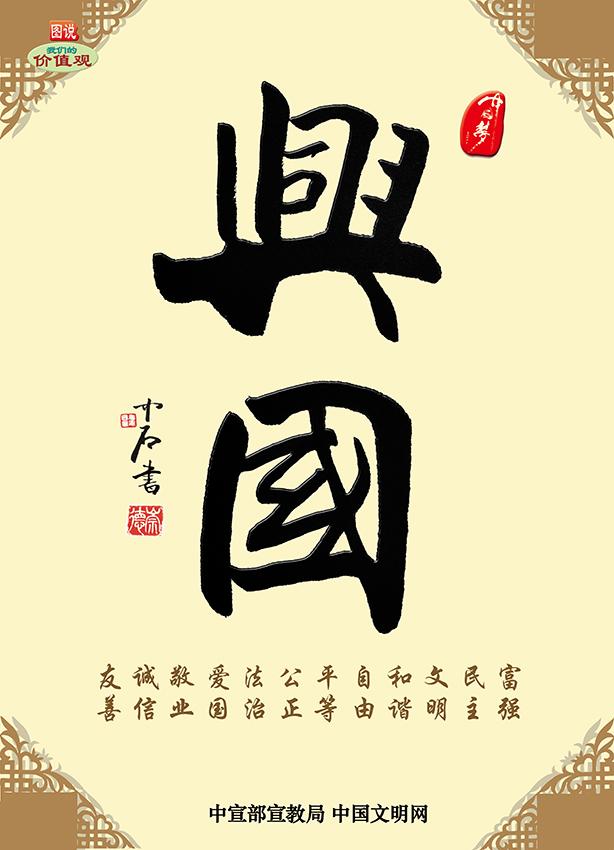 图说
我们的
价值观
中国梦
興國
中石書
崇德
富强
民主
文明
和谐
自由
平等
公正
法治
爱国
敬业
诚信
友善
中宣部宣教局 中国文明网